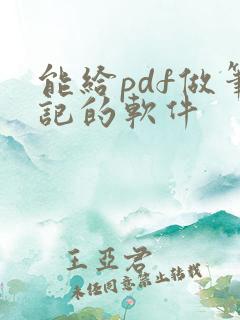 能給pdf做筆
記的軟件
王亞君
未經同意禁止轉載